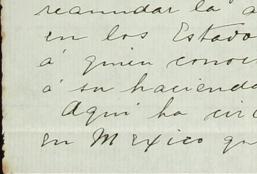 reanudar la a
en los Estado
á quien conoc
á su haciend
Aquí ha cir
en Mexico qu